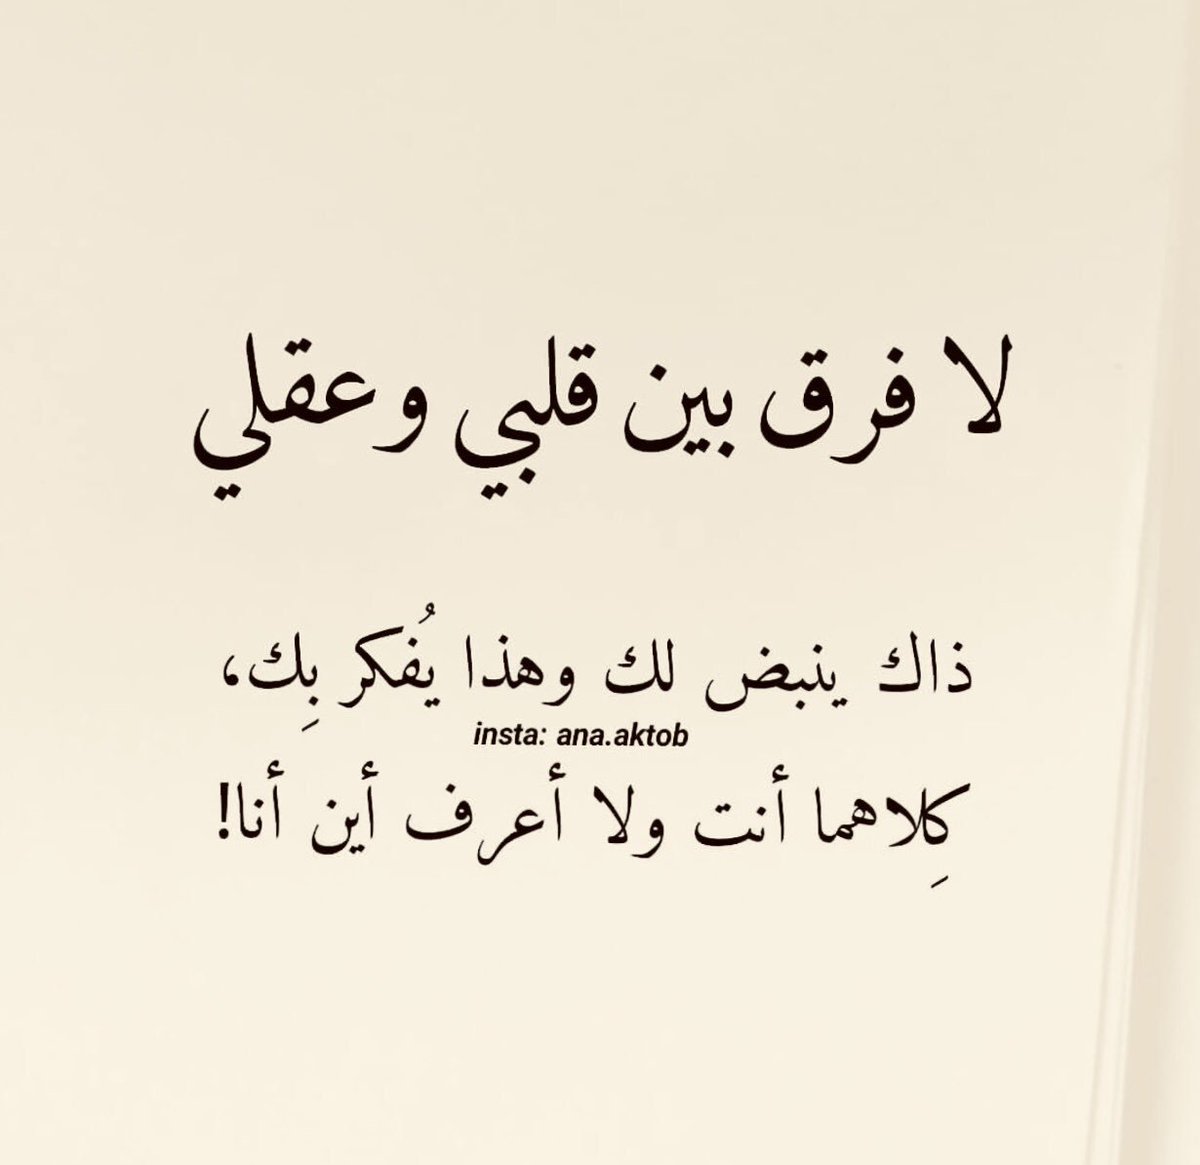 لا فرق بين قلبي وعقلي
ذاك ينبض لك وهذا يُفكر بِك،
insta: ana.aktob
كِلاهما أنت ولا أعرف أين أنا!